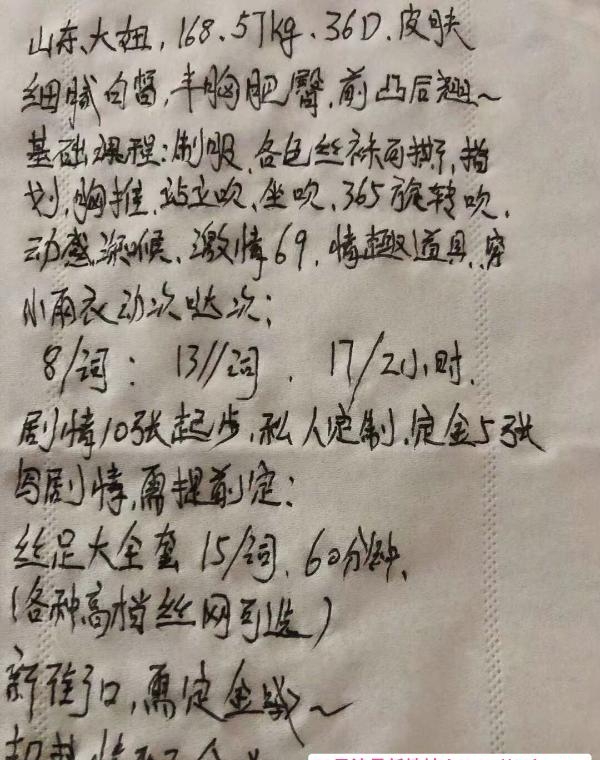 山东、大妞,168.57kg、36D.皮肤
细腻白皙,丰胸肥臀,前凸后翘~
基础课程:制服、各色丝袜可撕,指
划,胸推、站立吹、坐吹、365旋转吹、
动感深喉、激情69.情趣道具,穿
小雨衣动次哒次:
8/词: 13//词. 17/2小时.
剧情10张起步、私人定制.定金5张
写剧情,需提前定:
丝足大全套 15/词.60分钟.
(各种高档丝网可选)
新街口,需定金